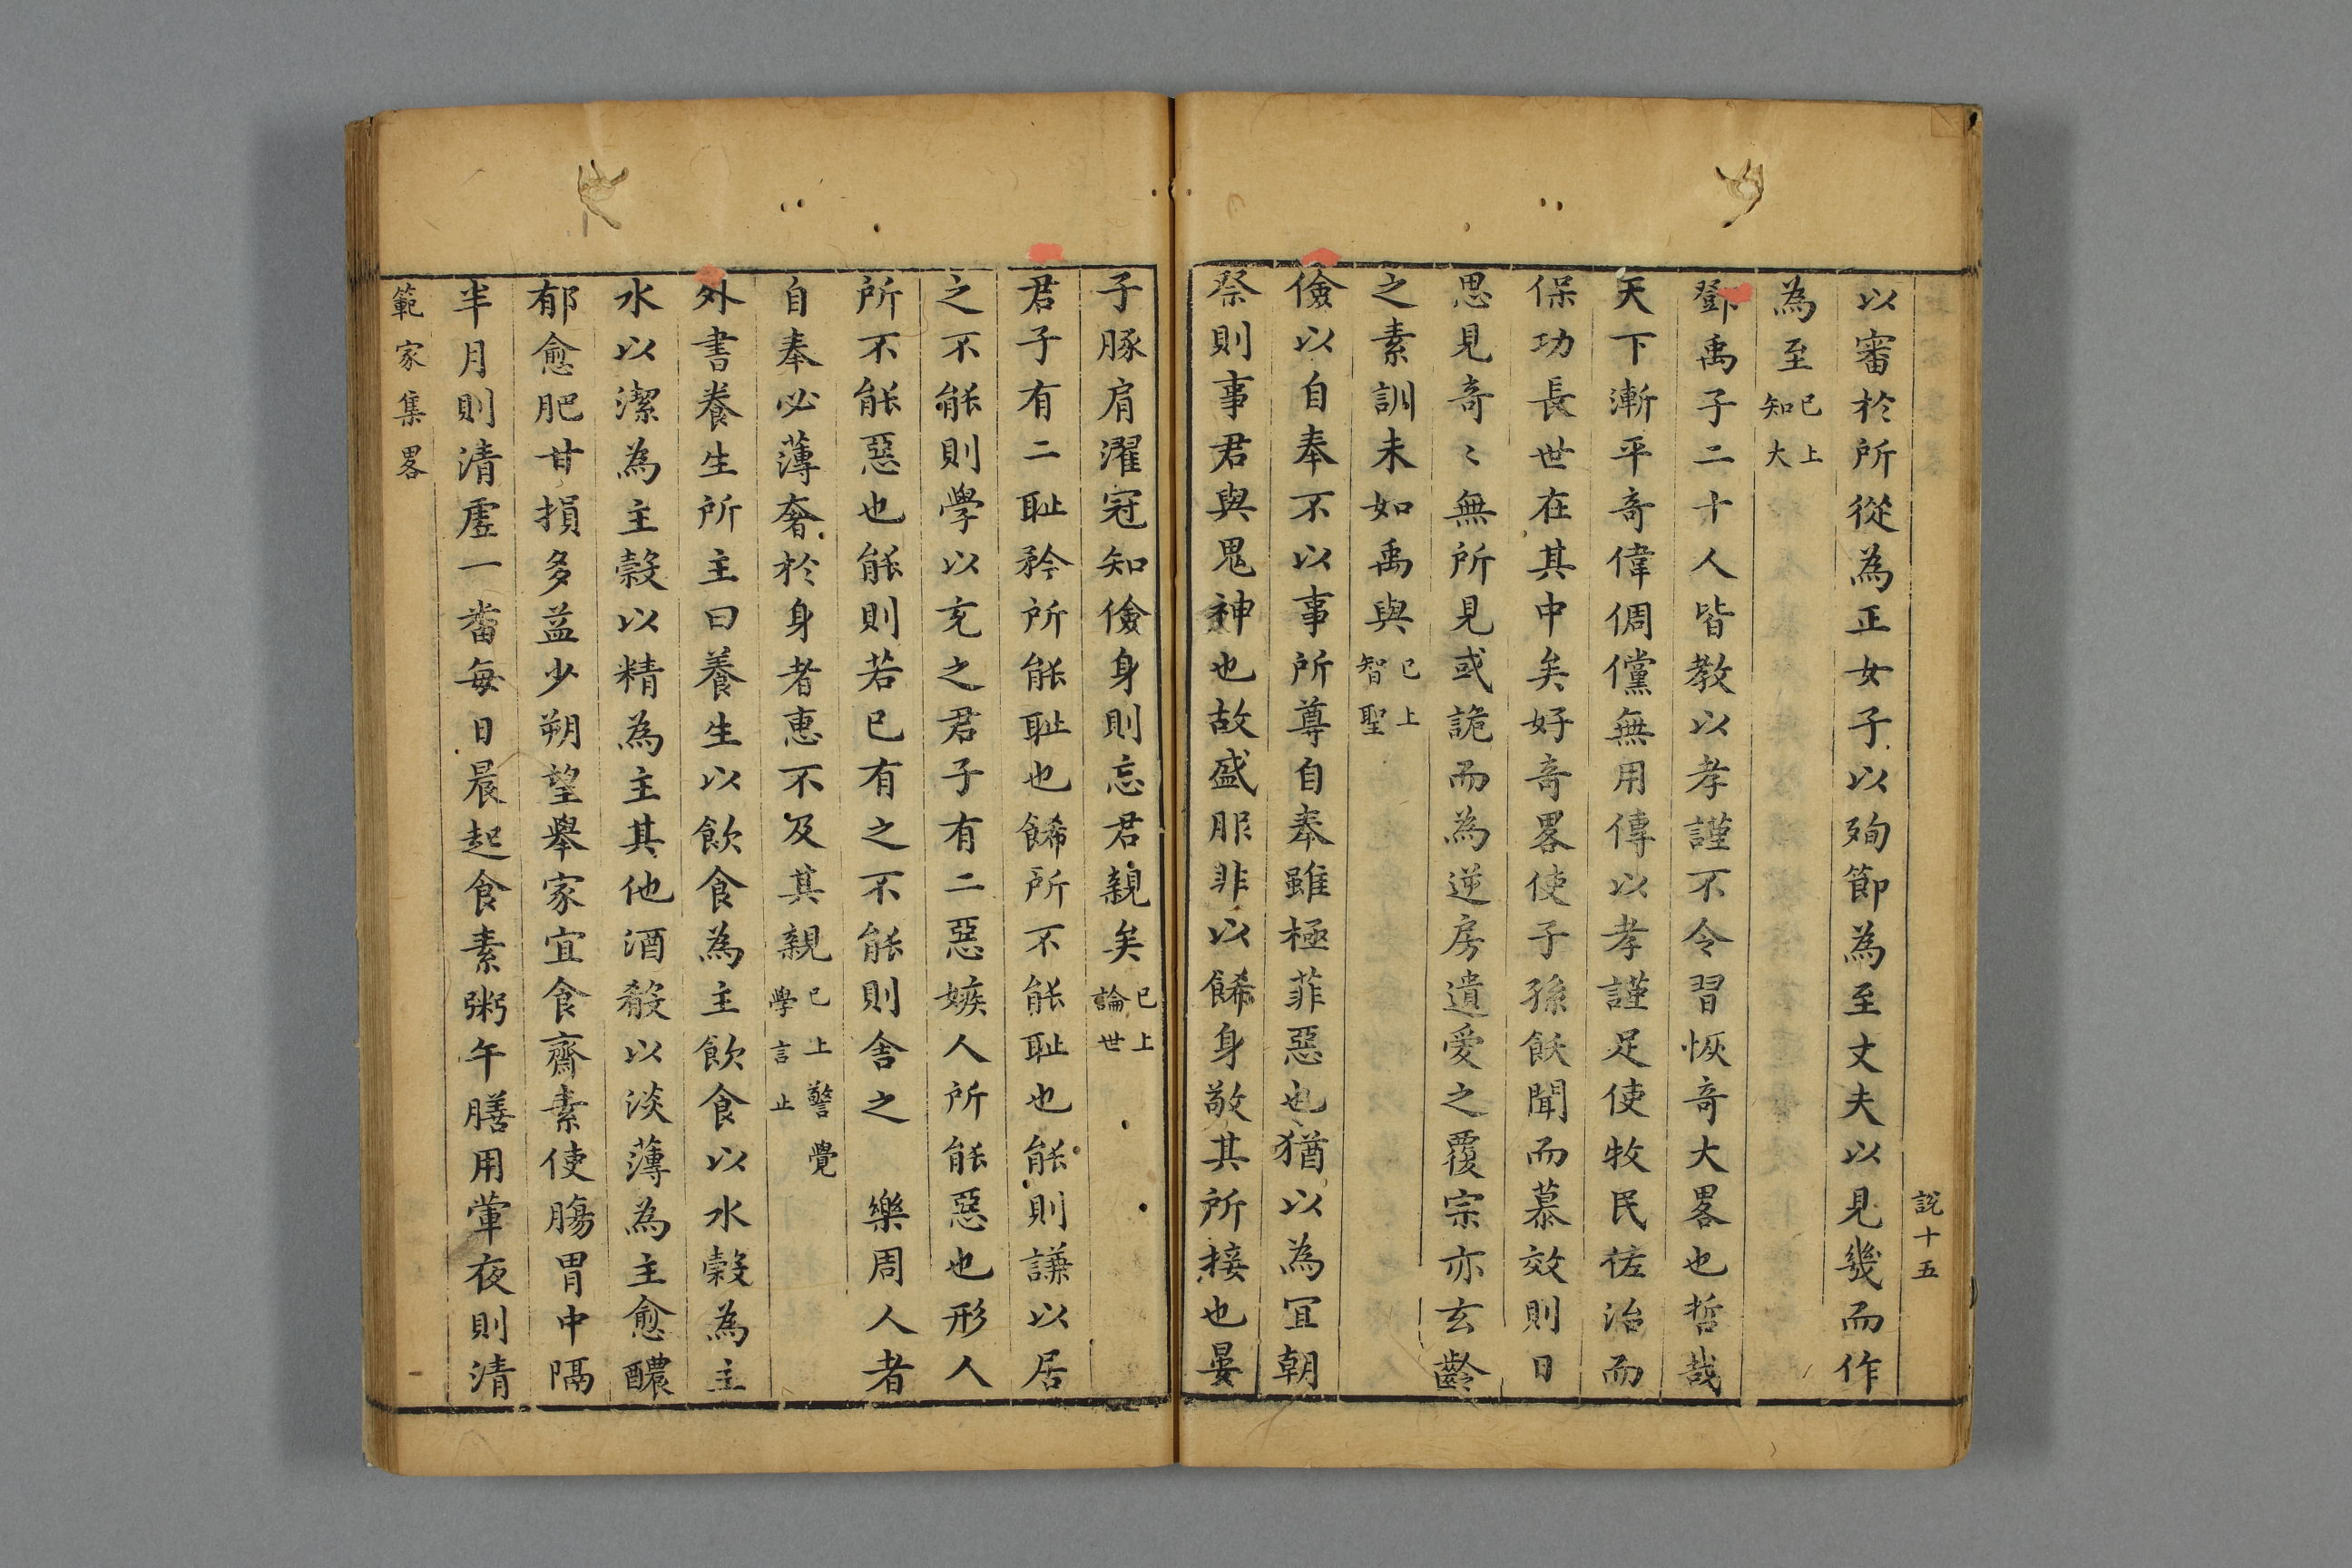 説十五
以審於所從為正女子以殉節為至丈夫以見幾而作
為至已上知大
鄧禹子二十人皆教以孝謹不令習恢奇大畧也哲哉
天下漸平奇偉倜儻無用傳以孝謹足使牧民佐治而
保功長世在其中矣好奇畧使子孫飫聞而慕效則日
思見奇〻無所見或詭而為逆房遺愛之覆宗亦玄齡
之素訓未如禹與已上智聖
儉以自奉不以事所尊自奉雖極菲惡也猶以為宜朝
祭則事君與鬼神也故盛服非以餙身敬其所接也晏
子豚肩濯冠知儉身則忘君親矣已上論世
君子有二恥矜所能恥也餙所不能恥也能則謙以居
之不能則學以充之君子有二惡嫉人所能惡也形人
所不能惡也能則若己有之不能則舍之 樂周人者
自奉必薄奢於身者惠不及其親已上警覺學言止
外書養生所主曰養生以飲食為主飲食以水榖為主
水以潔為主榖以精為主其他酒殽以淡薄為主愈醲
郁愈肥甘損多益少朔望舉家宜食齋素使腸胃中隔
半月則清虛一番每日晨起食素粥午膳用葷夜則清
範家集畧